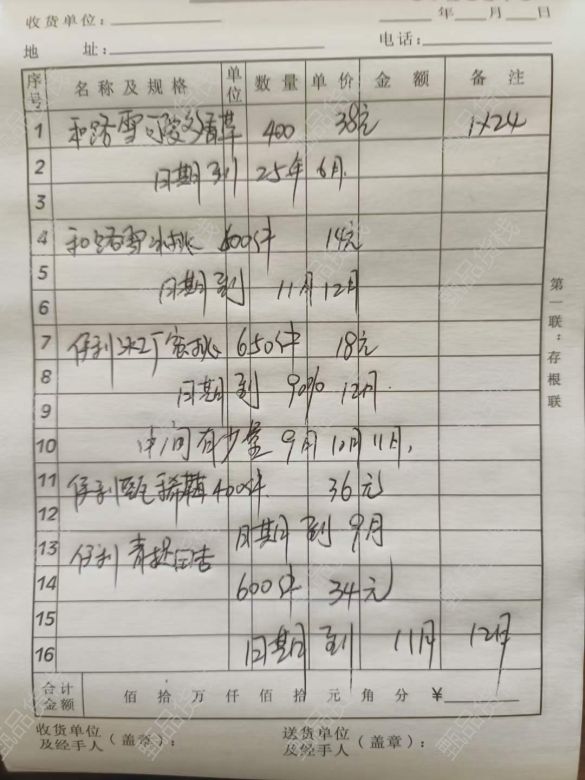 收货单位： 年 月 日
地 址： 电话：
序号 名称及规格 单位 数量 单价 金额 备注
1 和路雪可爱多香草 400 38元 1×24
2 日期到 25年 6月
3
4 和路雪冰桃 600件 14元
5 日期到 11月 12月
6
7 伊利冰工厂蜜桃 650件 18元
8 日期到 90% 12月.
9
10 中间有少量 9月 10月 11月,
11 伊利甄稀 400件 36元
12 日期到 9月
13 伊利青提
14 600件 34元
15
16 日期到 11月 12月
合计金额 佰 拾 万 仟 佰 拾 元 角 分 ¥
收货单位及经手人（盖章）： 送货单位及经手人（盖章）：
第一联：存根联
甄品货线